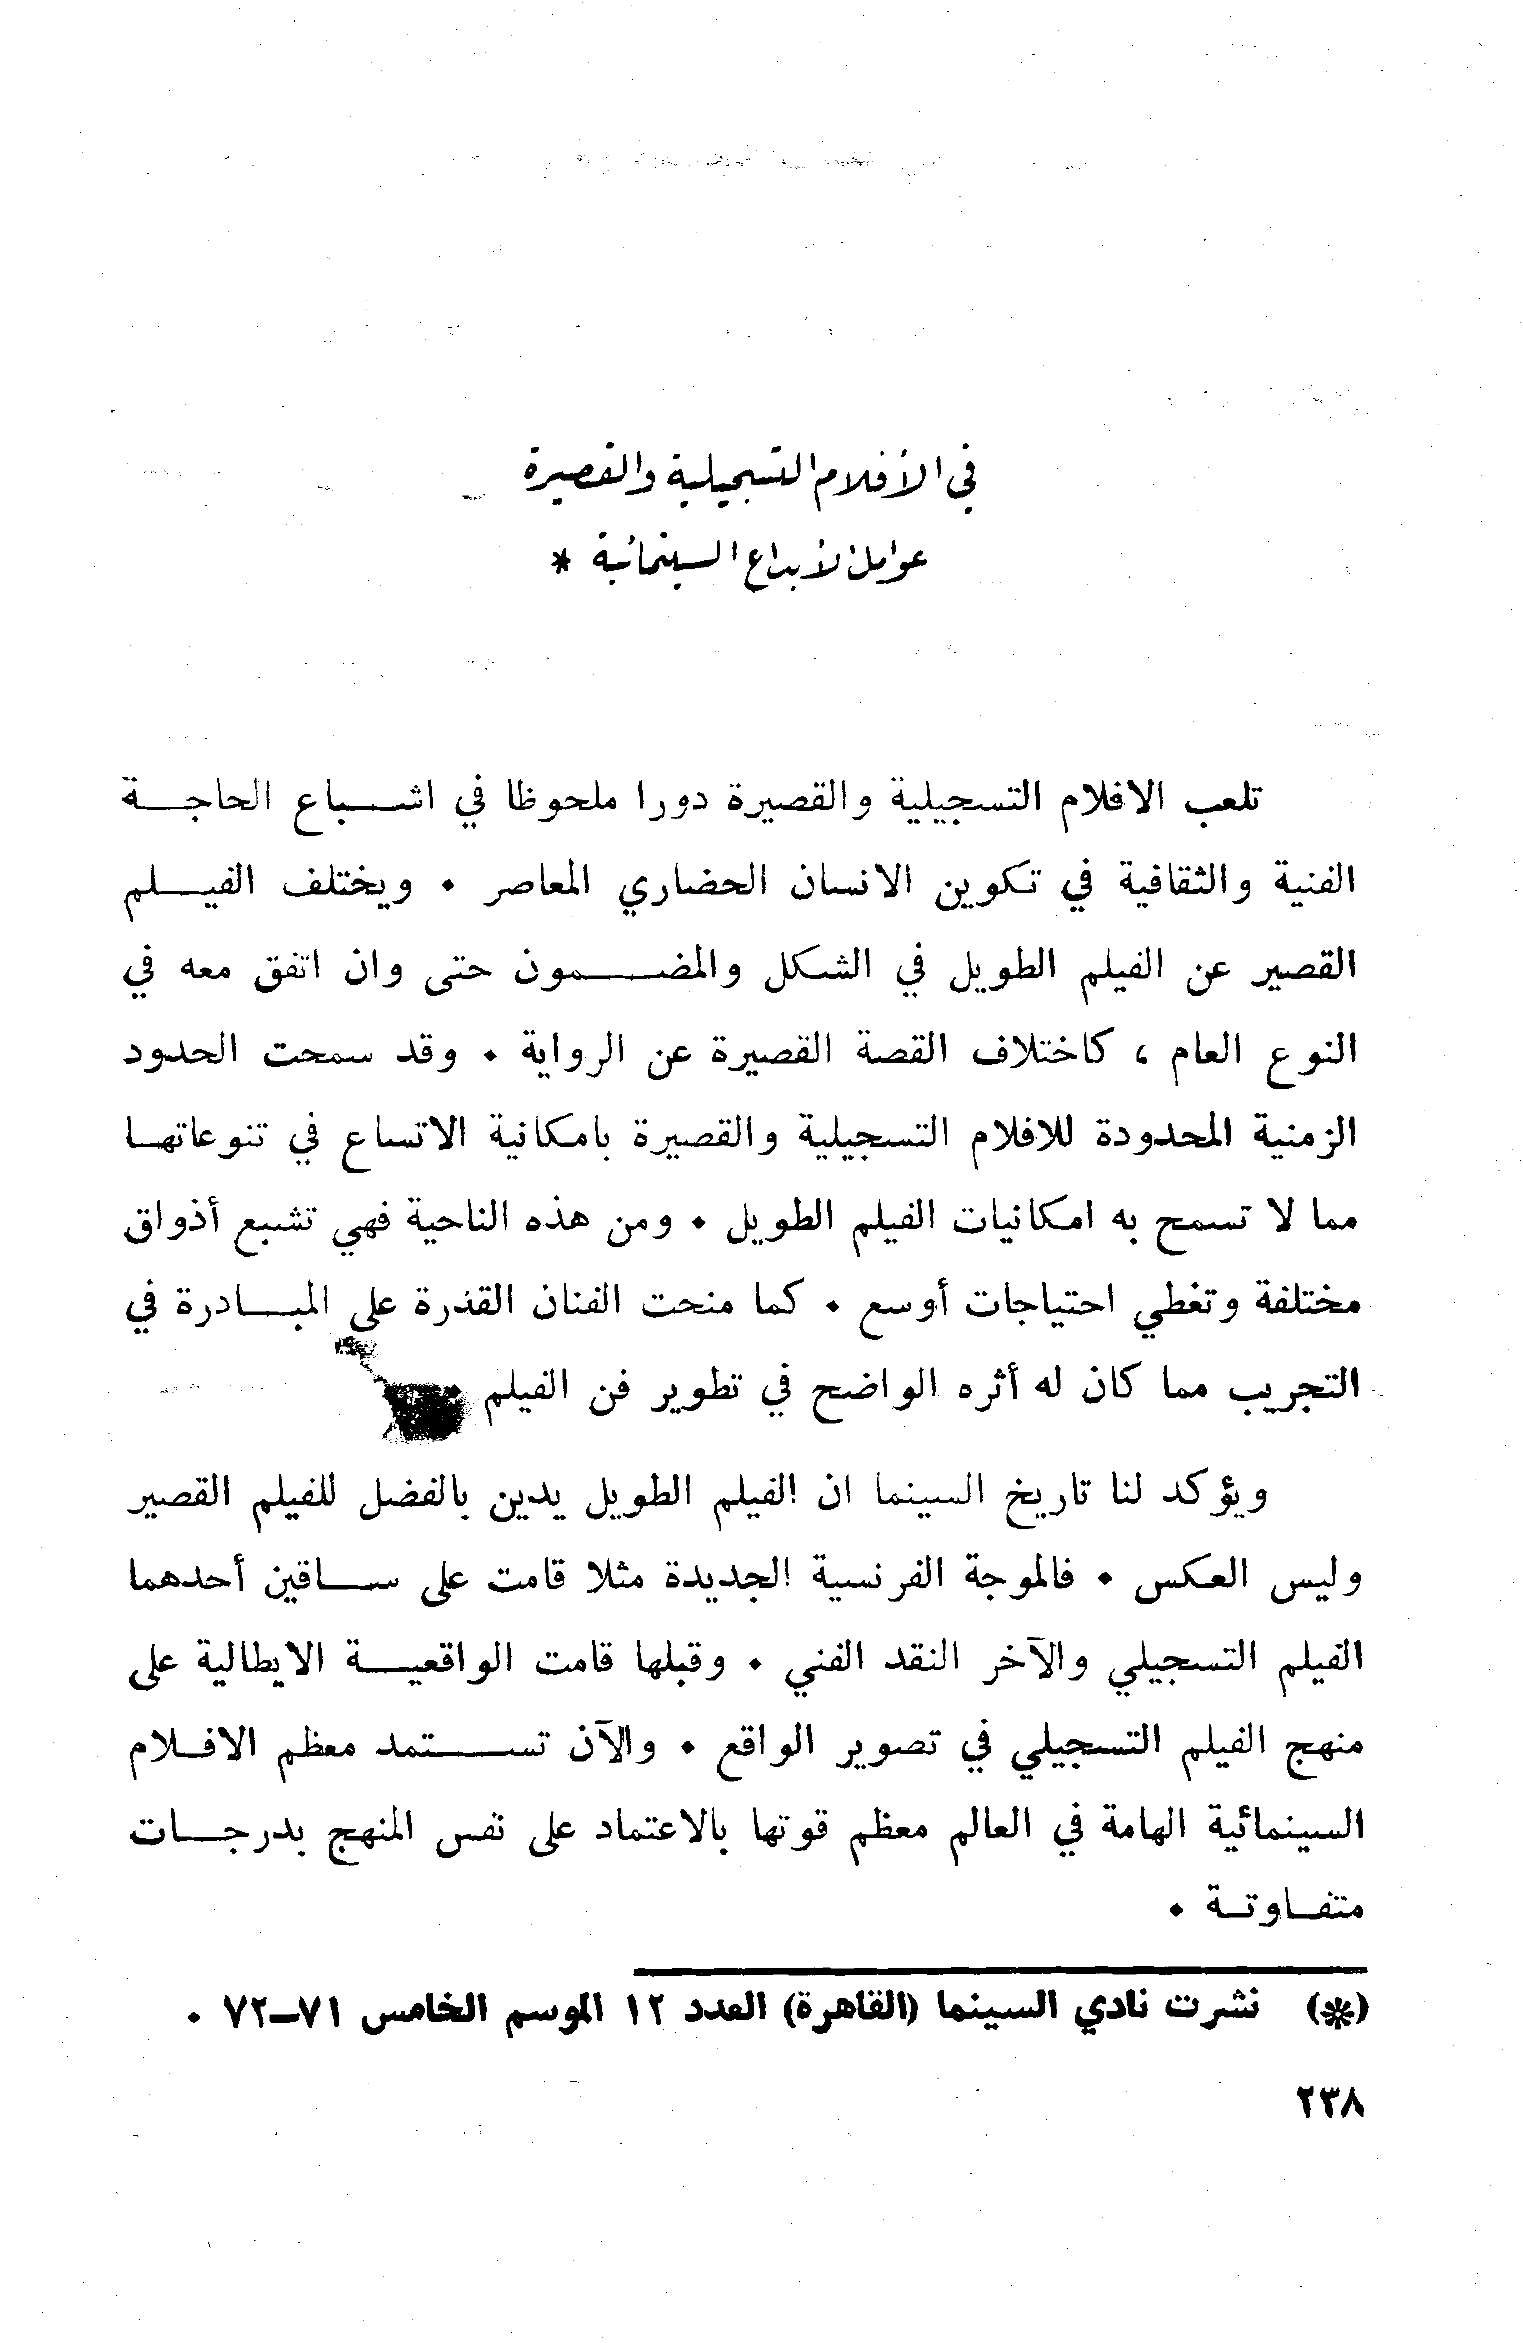 في الأفلام التسجيلية والقصيرة
عوامل الأبداع السينمائية *
تلعب الافلام التسجيلية والقصيرة دورا ملحوظا في اشباع الحاجة
الفنية والثقافية في تكوين الانسان الحضاري المعاصر . ويختلف الفيلم
القصير عن الفيلم الطويل في الشكل والمضمون حتى وان اتفق معه في
النوع العام ، كاختلاف القصة القصيرة عن الرواية . وقد سمحت الحدود
الزمنية المحدودة للافلام التسجيلية والقصيرة بامكانية الاتساع في تنوعاتها
مما لا تسمح به امكانيات الفيلم الطويل . ومن هذه الناحية فهي تشبع أذواق
مختلفة وتغطي احتياجات أوسع . كما منحت الفنان القدرة على المبادرة في
التجريب مما كان له أثره الواضح في تطوير فن الفيلم .
ويؤكد لنا تاريخ السينما ان الفيلم الطويل يدين بالفضل للفيلم القصير
وليس العكس . فالموجة الفرنسية الجديدة مثلا قامت على ساقين أحدهما
الفيلم التسجيلي والآخر النقد الفني . وقبلها قامت الواقعية الايطالية على
منهج الفيلم التسجيلي في تصوير الواقع . والآن تستمد معظم الافلام
السينمائية الهامة في العالم معظم قوتها بالاعتماد على نفس المنهج بدرجات
متفاوتة .
(*) نشرت نادي السينما (القاهرة) العدد ١٢ الموسم الخامس ٧١–٧٢ .
٢٣٨